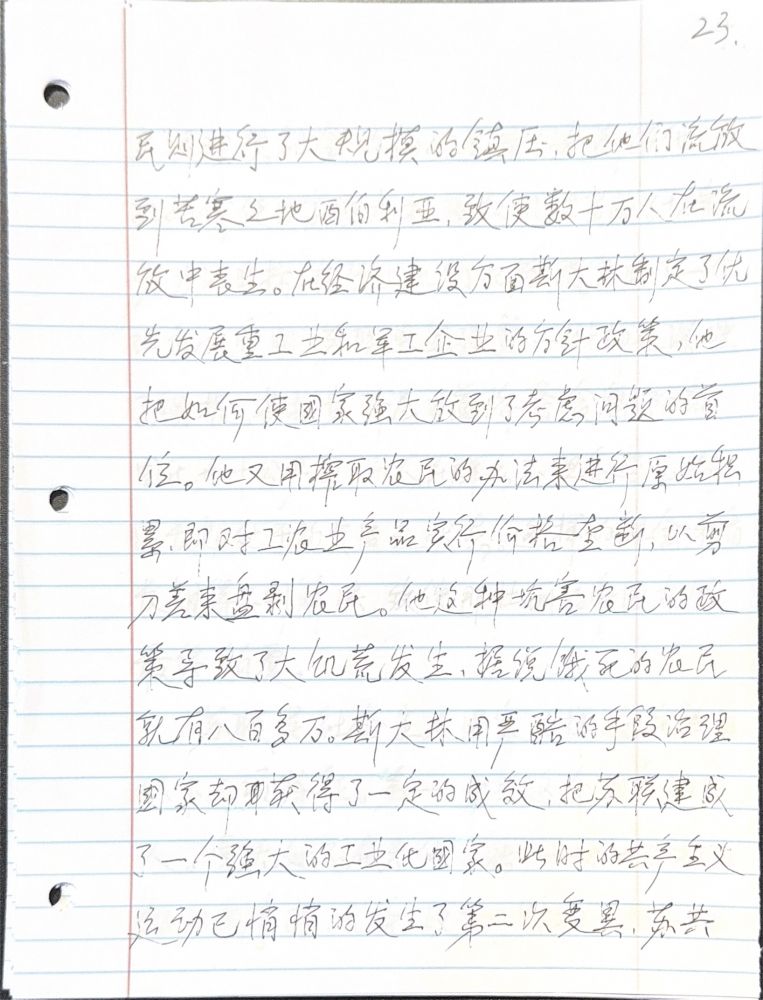 23.
民则进行了大规模的镇压,把他们流放
到苦寒之地西伯利亚,致使数十万人在流
放中丧生。在经济建设方面斯大林制定了优
先发展重工业和军工企业的方针政策,他
把如何使国家强大放到了考虑问题的首
位。他又用榨取农民的办法来进行原始积
累,即对工农业产品实行价格垄断,以剪
刀差来盘剥农民。他这种坑害农民的政
策导致了大饥荒发生,据说饿死的农民
就有八百多万。斯大林用严酷的手段治理
国家却获得了一定的成效,把苏联建成
了一个强大的工业化国家。此时的共产主义
运动已悄悄的发生了第二次变異,苏共